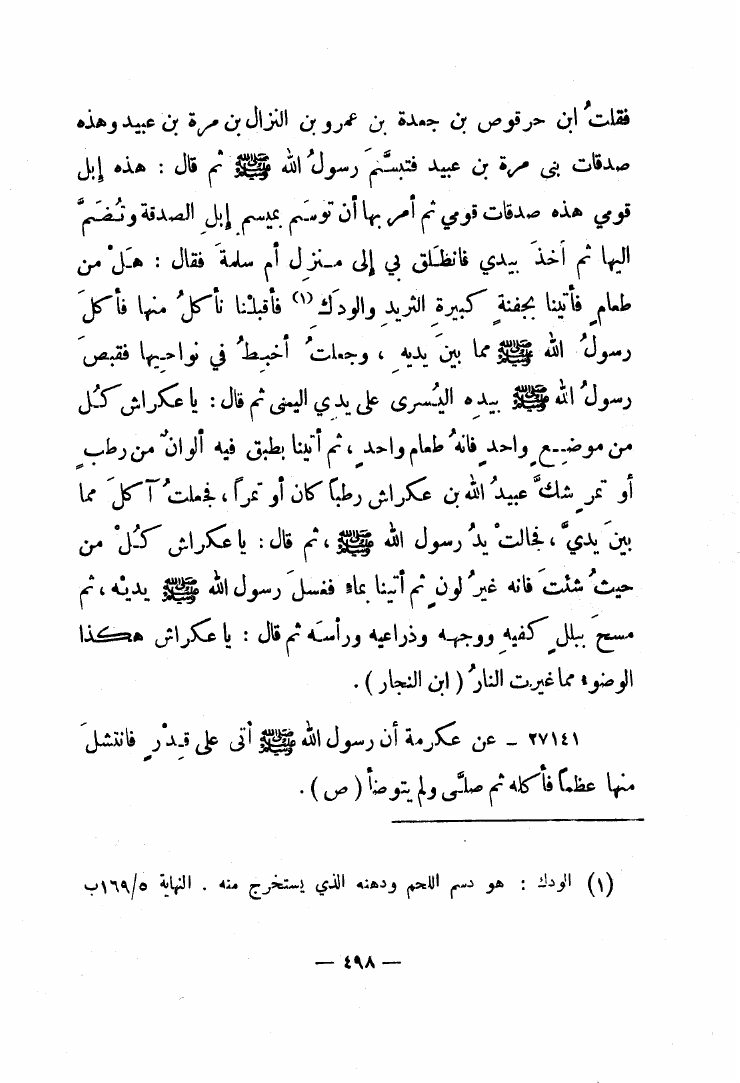 فقلتُ ابن حرقوص بن جعدة بن عمرو بن النزال بن مرة بن عبيد وهذه
صدقات بني مرة بن عبيد فتبسَّمَ رسولُ الله ﷺ ثم قال : هذه إبل
قومي هذه صدقات قومي ثم أمر بها أن توسَم بميسم إبل الصدقة وتُضَمَّ
اليها ثم أخذَ بيدي فانطلق بي إلى منزل أم سلمةَ فقال : هلْ من
طعامٍ فأتينا بجفنةٍ كبيرةِ الثريد والودَكِ (١) فأقبلْنا نأكلُ منها فأكلَ
رسولُ الله ﷺ مما بينَ يديهِ ، وجعلتُ أخبطُ في نواحيها فقبصَ
رسولُ الله ﷺ بيدِه اليُسرى على يدِي اليمنى ثم قال : يا عكراش كُل
من موضعٍ واحدٍ فانهُ طعام واحدٍ ، ثم أتينا بطبق فيه ألوانٌ من رطبٍ
أو تمرٍ شكَّ عبيدُ الله بن عكراش رطباً كان أو تمراً ، فجعلتُ آكلَ مما
بينَ يديَّ ، فجالتْ يدُ رسول الله ﷺ ، ثم قال : يا عكراش كُلْ من
حيثُ شئتَ فانه غيرُ لونٍ ثم أتينا بماءٍ ففسلَ رسول الله ﷺ يديْه ، ثم
مسحَ ببللِ كفيهِ ووجهه وذراعيه ورأسَه ثم قال : يا عكراش هكذا
الوضوء مما غيرت النارُ ( ابن النجار ) .
٢٧١٤١ ـ عن عكرمة أن رسول الله ﷺ أتى على قِدْرٍ فانتشلَ
منها عظماً فأكله ثم صلَّى ولم يتوضأ ( ص ) .
(١) الودك : هو دسم اللحم ودهنه الذي يستخرج منه . النهاية ١٦٩/٥ ب
— ٤٩٨ —